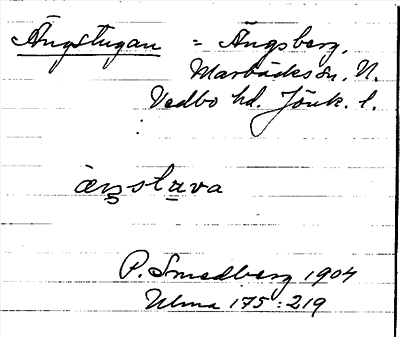 Ängstugan = Ängsberg,
Marbäcks sn, N.
Vedbo hd. Jönk. l.
æŋstʋva
P. Smedberg 1904
Ulma 175:219